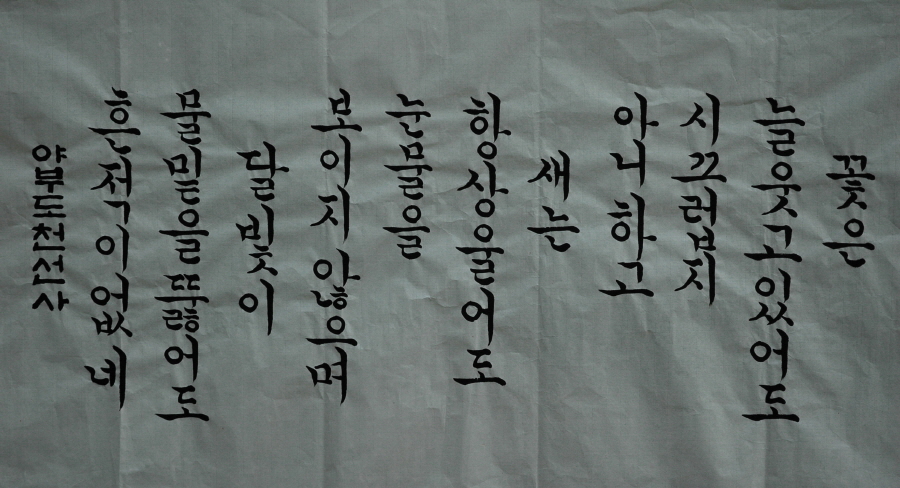 꽃은
늘웃고있어도
시끄럽지
아니하고
새는
항상울어도
눈물을
보이지않으며
달빛이
물밑을뚫어도
흔적이없네
야부도천선사